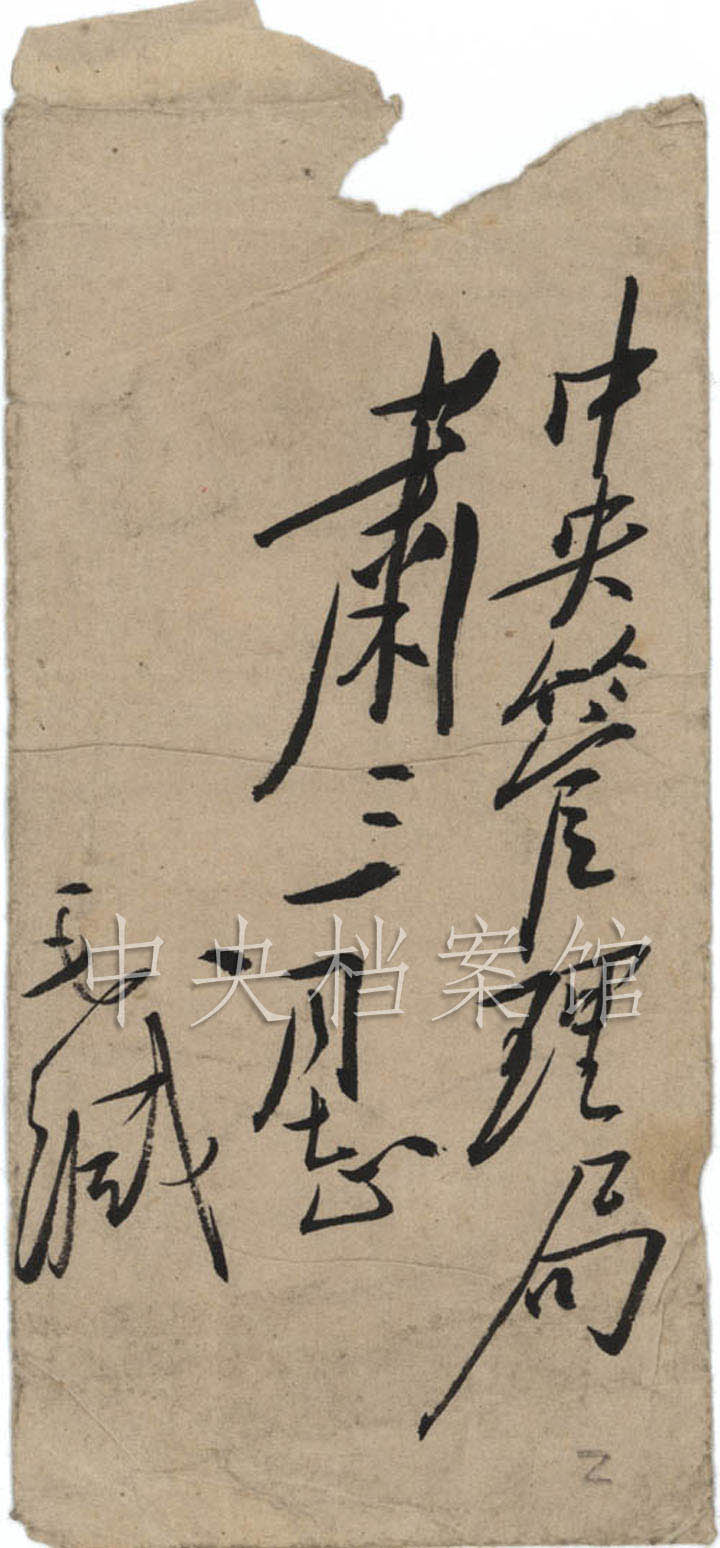 中央管理局
萧三同志
毛缄
中央档案馆
2